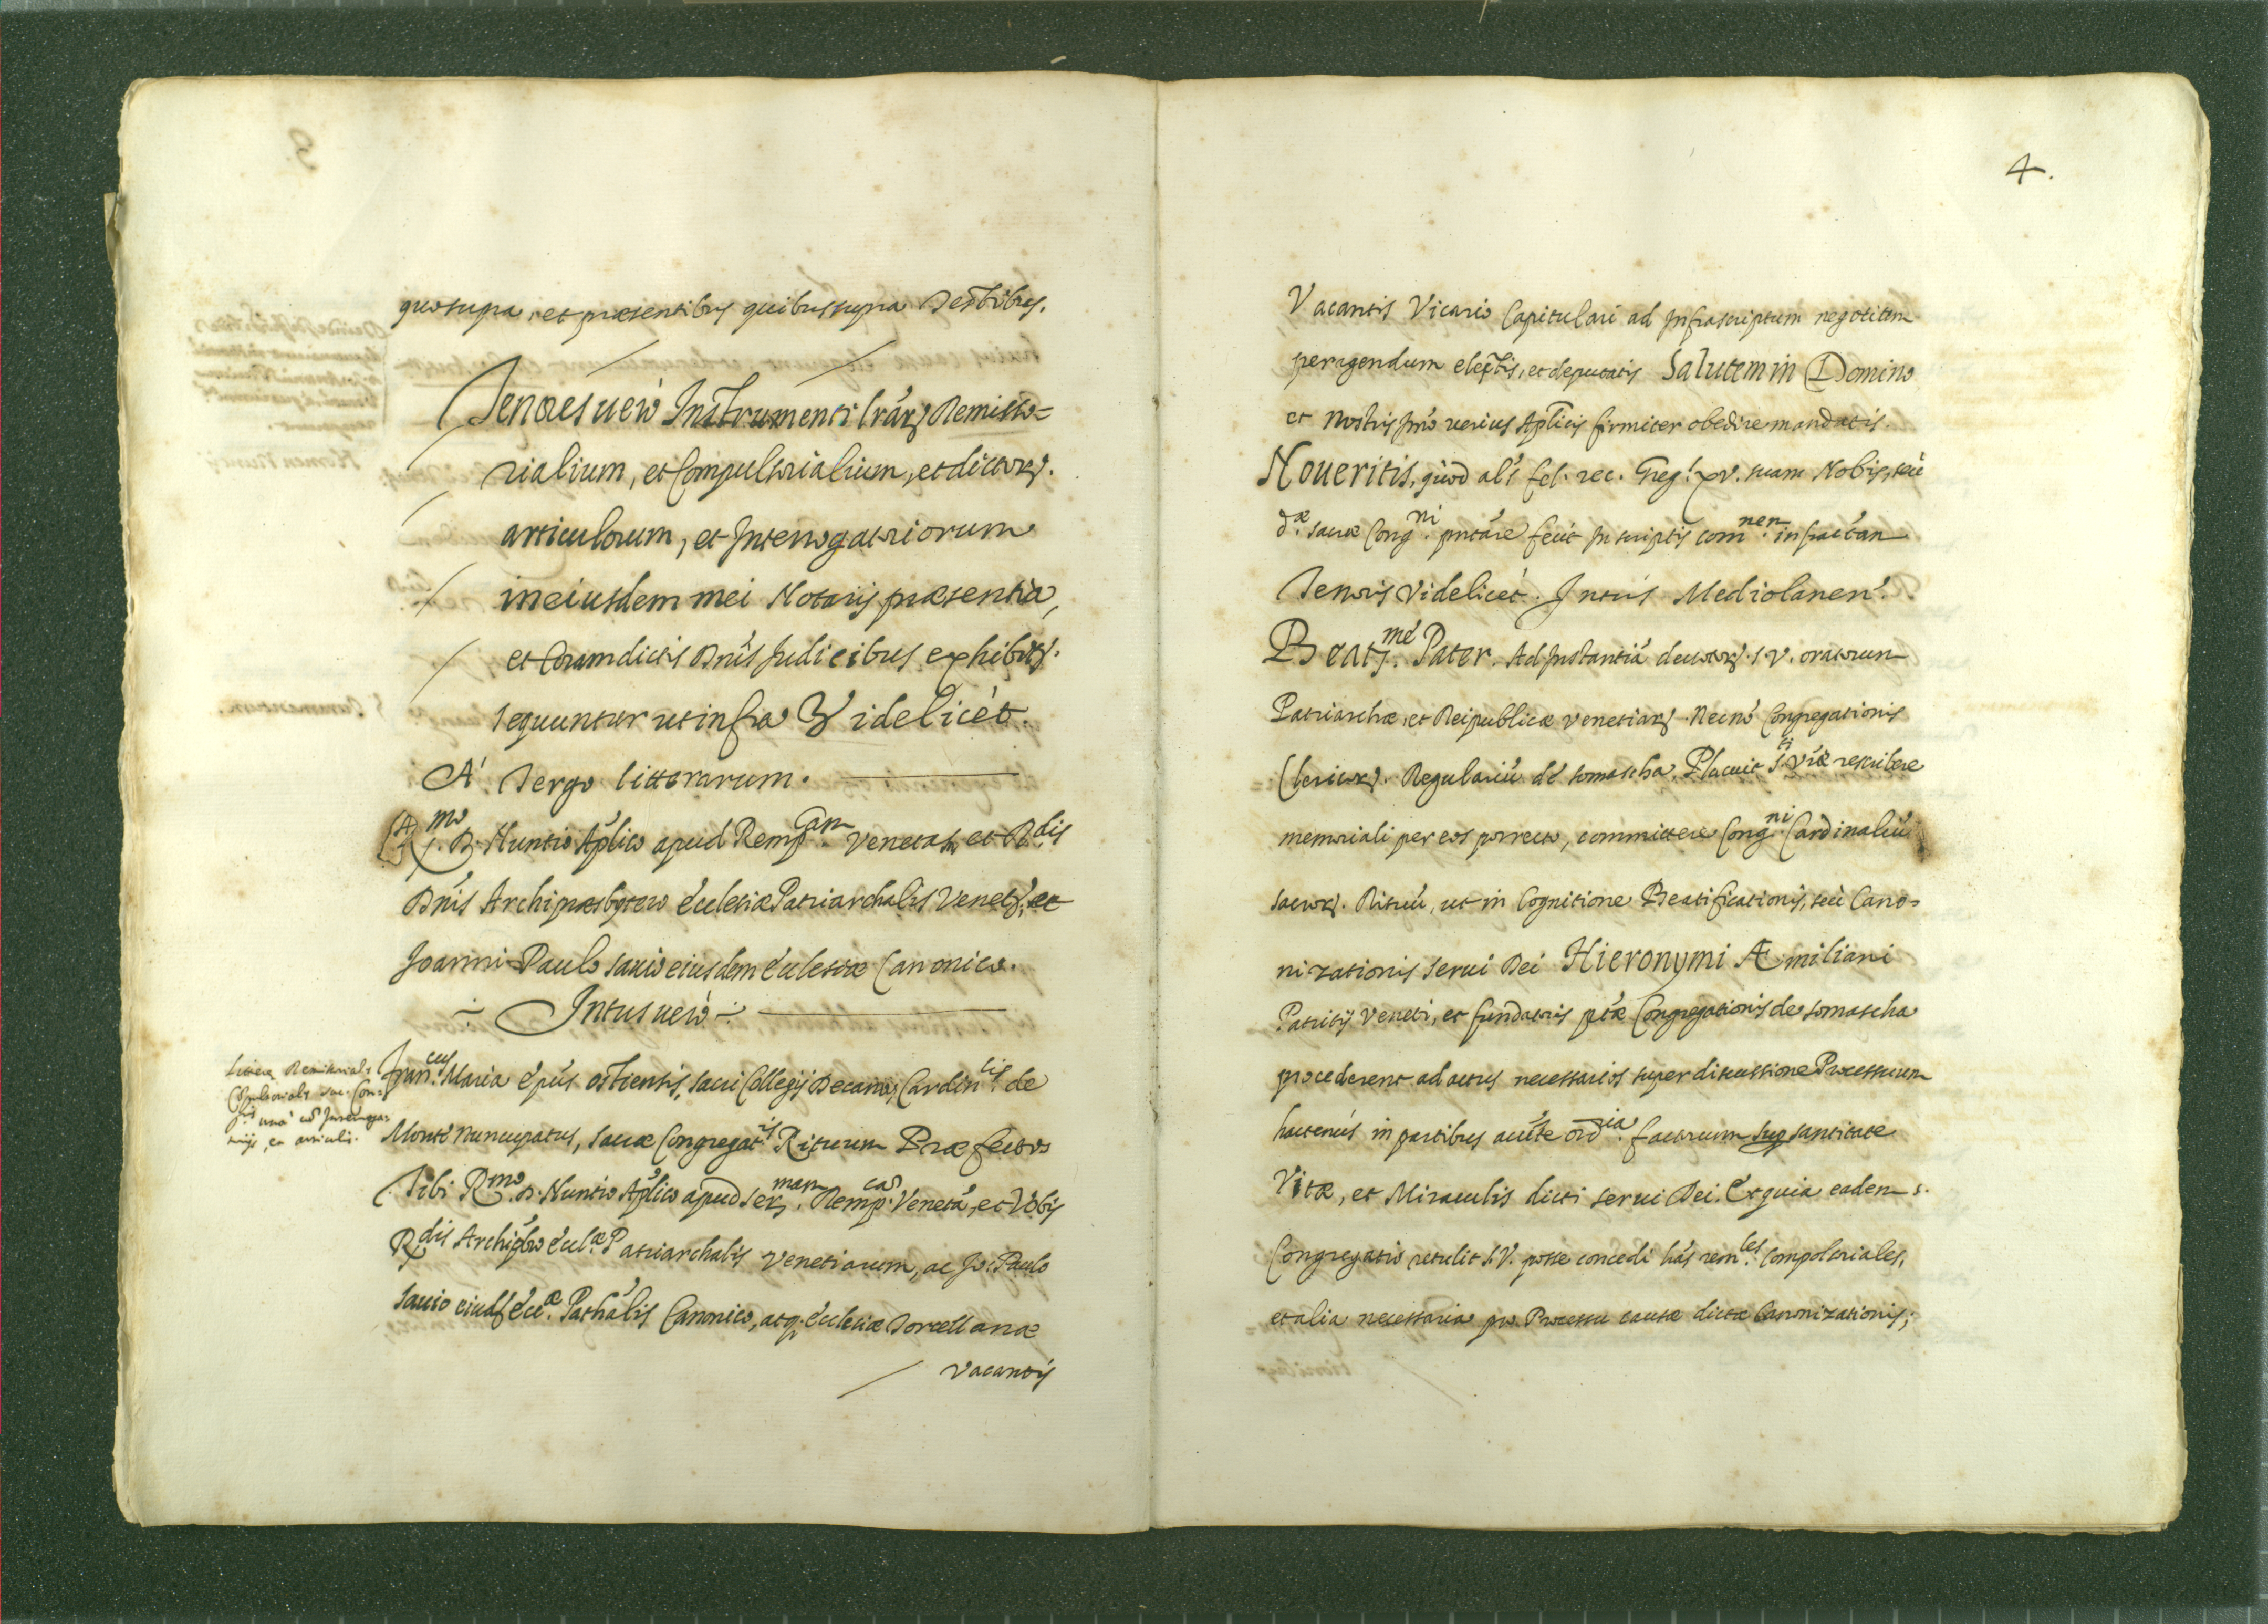 quo supra, et præsentibus quibus supra Testibus.
Tenores uerò Instrumenti lrãrꝫ Remisso=
rialium, et Compulsorialium, et dictorꝫ.
articulorum, et Interrogatoriorum
in eiusdem mei Notarij præsentia,
et Coram dictis Dnis Judicibus exhibitꝫ.
sequuntur ut infra Videlicèt.
A' Tergo litterarum.
R.mo D. Nuntio Aplico apud Remp.cam Venetam, et R.dis
Dnis Archipræsbytero Ecclesiæ Patriarchalis Venetꝫ, et
Joanni Paulo sauio eiusdem Ecclesiæ Canonico.
Intus uerò
Litteræ Remissorial:
Compulsorials sac. Con=
g.nis unà cũ Interroga=
torijs, et articulis.
Fran.cus Maria Epũs ostiensis, sacri Collegij Decanus, Cardin.lis de
Monte nuncupatus, sacræ Congregat.is Rituum Præfectus
Tibi R.mo D. Nuntio Aplico apud ser.mam Remp.cã Venetã, et Vobis
R.dis Archipbro Eccl.æ Patriarchalis Venetiarum, ac Jo: Paulo
Sauio eiusd Ecc.æ Patħalis Canonico, atq; Ecclesiæ Torcellanæ
Vacantis
4.
Vacantis Vicario Capitulari ad Infrascriptum negotium
peragendum electis, et deputatis Salutem in Domino
et Nostris Imò uerius Aplicis firmiter obedire mandatis.
Noueritis, quod als fel. rec. Greg. XV. suam Nobis, seù
d.æ sacræ Cong.ni pntãre fecit In scriptis com.nem infractam
Tenoris Videlicèt. Intùs Mediolanen.
Beat.me Pater. Ad Instantiã deuotorꝫ. S. V. oratorum
Patriarchæ, et Reipublicæ Venetiarꝫ. Necnõ Congregationis
Clericorꝫ. Regulariũ de somascha, Placuit S.ti Vræ rescribere
memoriali per eos porrecto, committere Cong.ni Cardinaliũ
sacrorꝫ. Rituũ, ut in Cognitione Beatificationis, seù Cano=
nizationis serui Dei Hieronymi Æmiliani
Patritij Veneti, et fundatoris ptæ Congregationis de somascha
procederent ad actus necessarios super discussione Processuum
hactenùs in partibus auctẽ ord.ia factorum sup santitate
Vitæ, et Miraculis dicti serui Dei. Et quia eadem s.
Congregatio retulit S. V. posse concedi hãs rem.les Compolsoriales,
et alia necessaria pro Processu causæ dictæ Canonizationis;